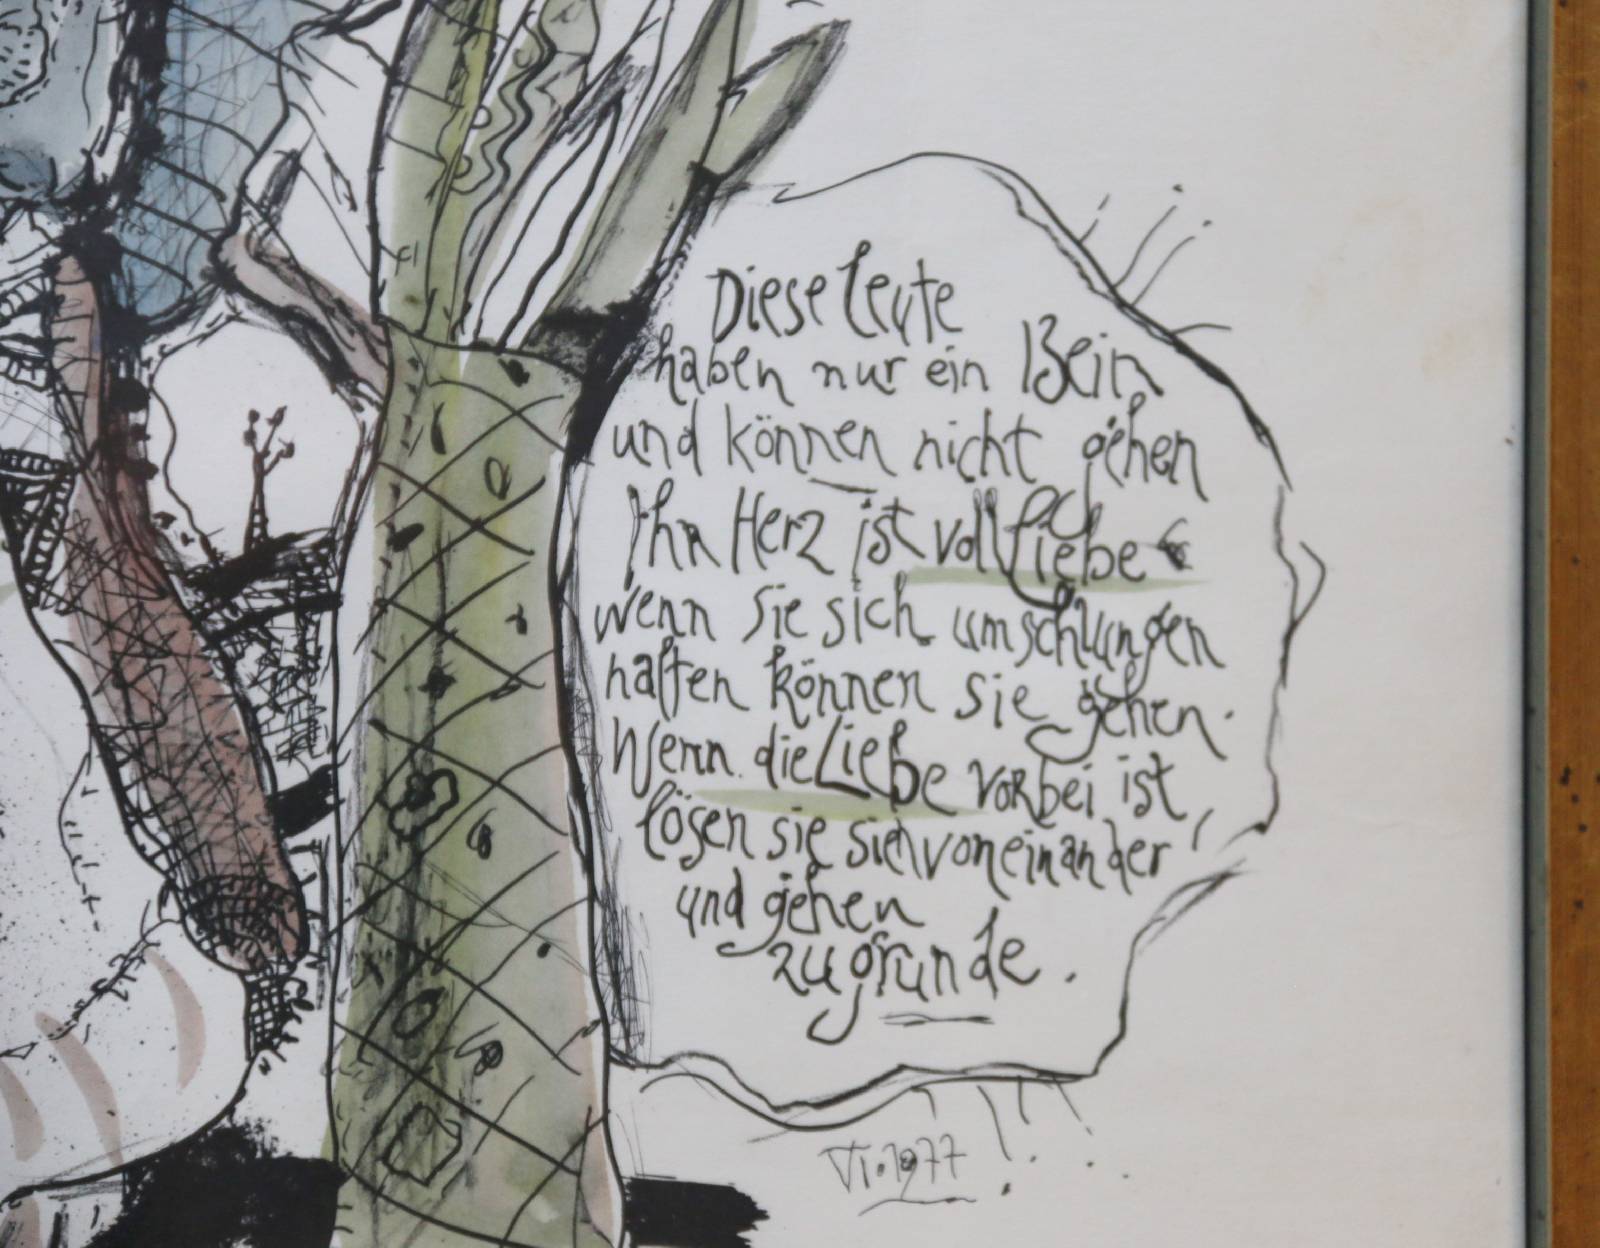 Diese Leute
haben nur ein Bein
und können nicht gehen
Ihr Herz ist voll Liebe
wenn sie sich umschlungen
halten können sie gehen.
Wenn die Liebe vorbei ist
lösen sie sich voneinander
und gehen
zugrunde.
VI.1977